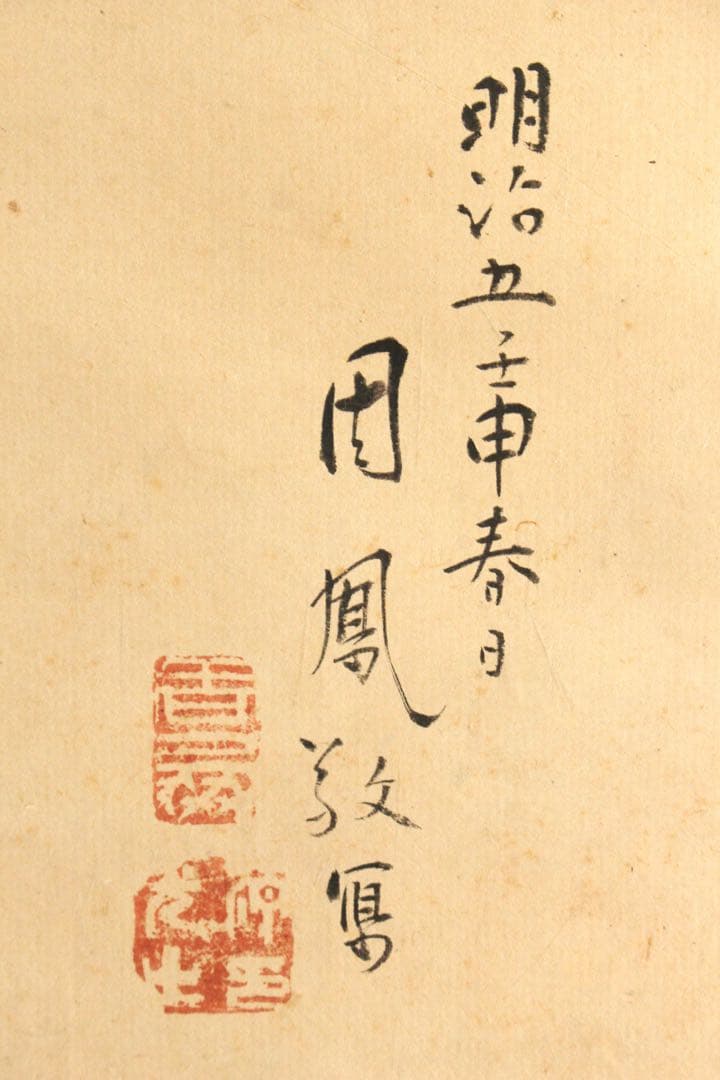 明治五壬申春日
周鳳敬寫